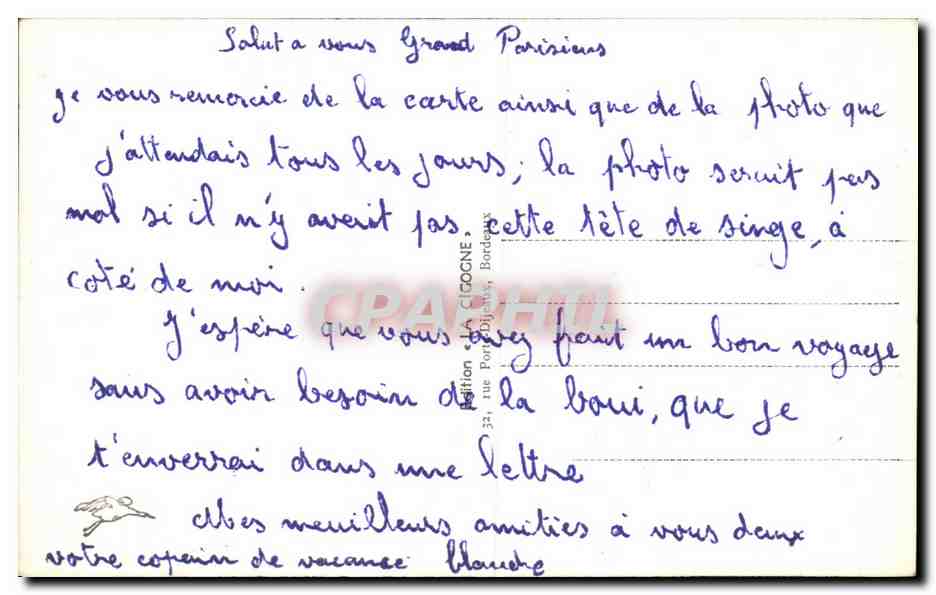 Salut a vous Grand Parisiens
je vous remercie de la carte ainsi que de la photo que
j'attendais tous les jours, la photo serait pas
mal si il n'y avait pas cette tête de singe, à
coté de moi.
J'espère que vous avez fait un bon voyage
sans avoir besoin de la boui, que je
t'enverrai dans une lettre
Mes meuilleurs amities à vous deux
votre copain de vacance Claude
Edition « LA CIGOGNE »
32, rue Porte-Dijeaux, Bordeaux
CPAPHIL